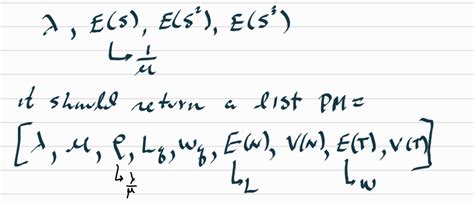 λ, E(S), E(S²), E(S³)
↳ 1/μ
it should return a list PM=
[λ, μ, ρ, Lq, Wq, E(N), V(N), E(T), V(T)]
↳ λ/μ ↳ L ↳ W